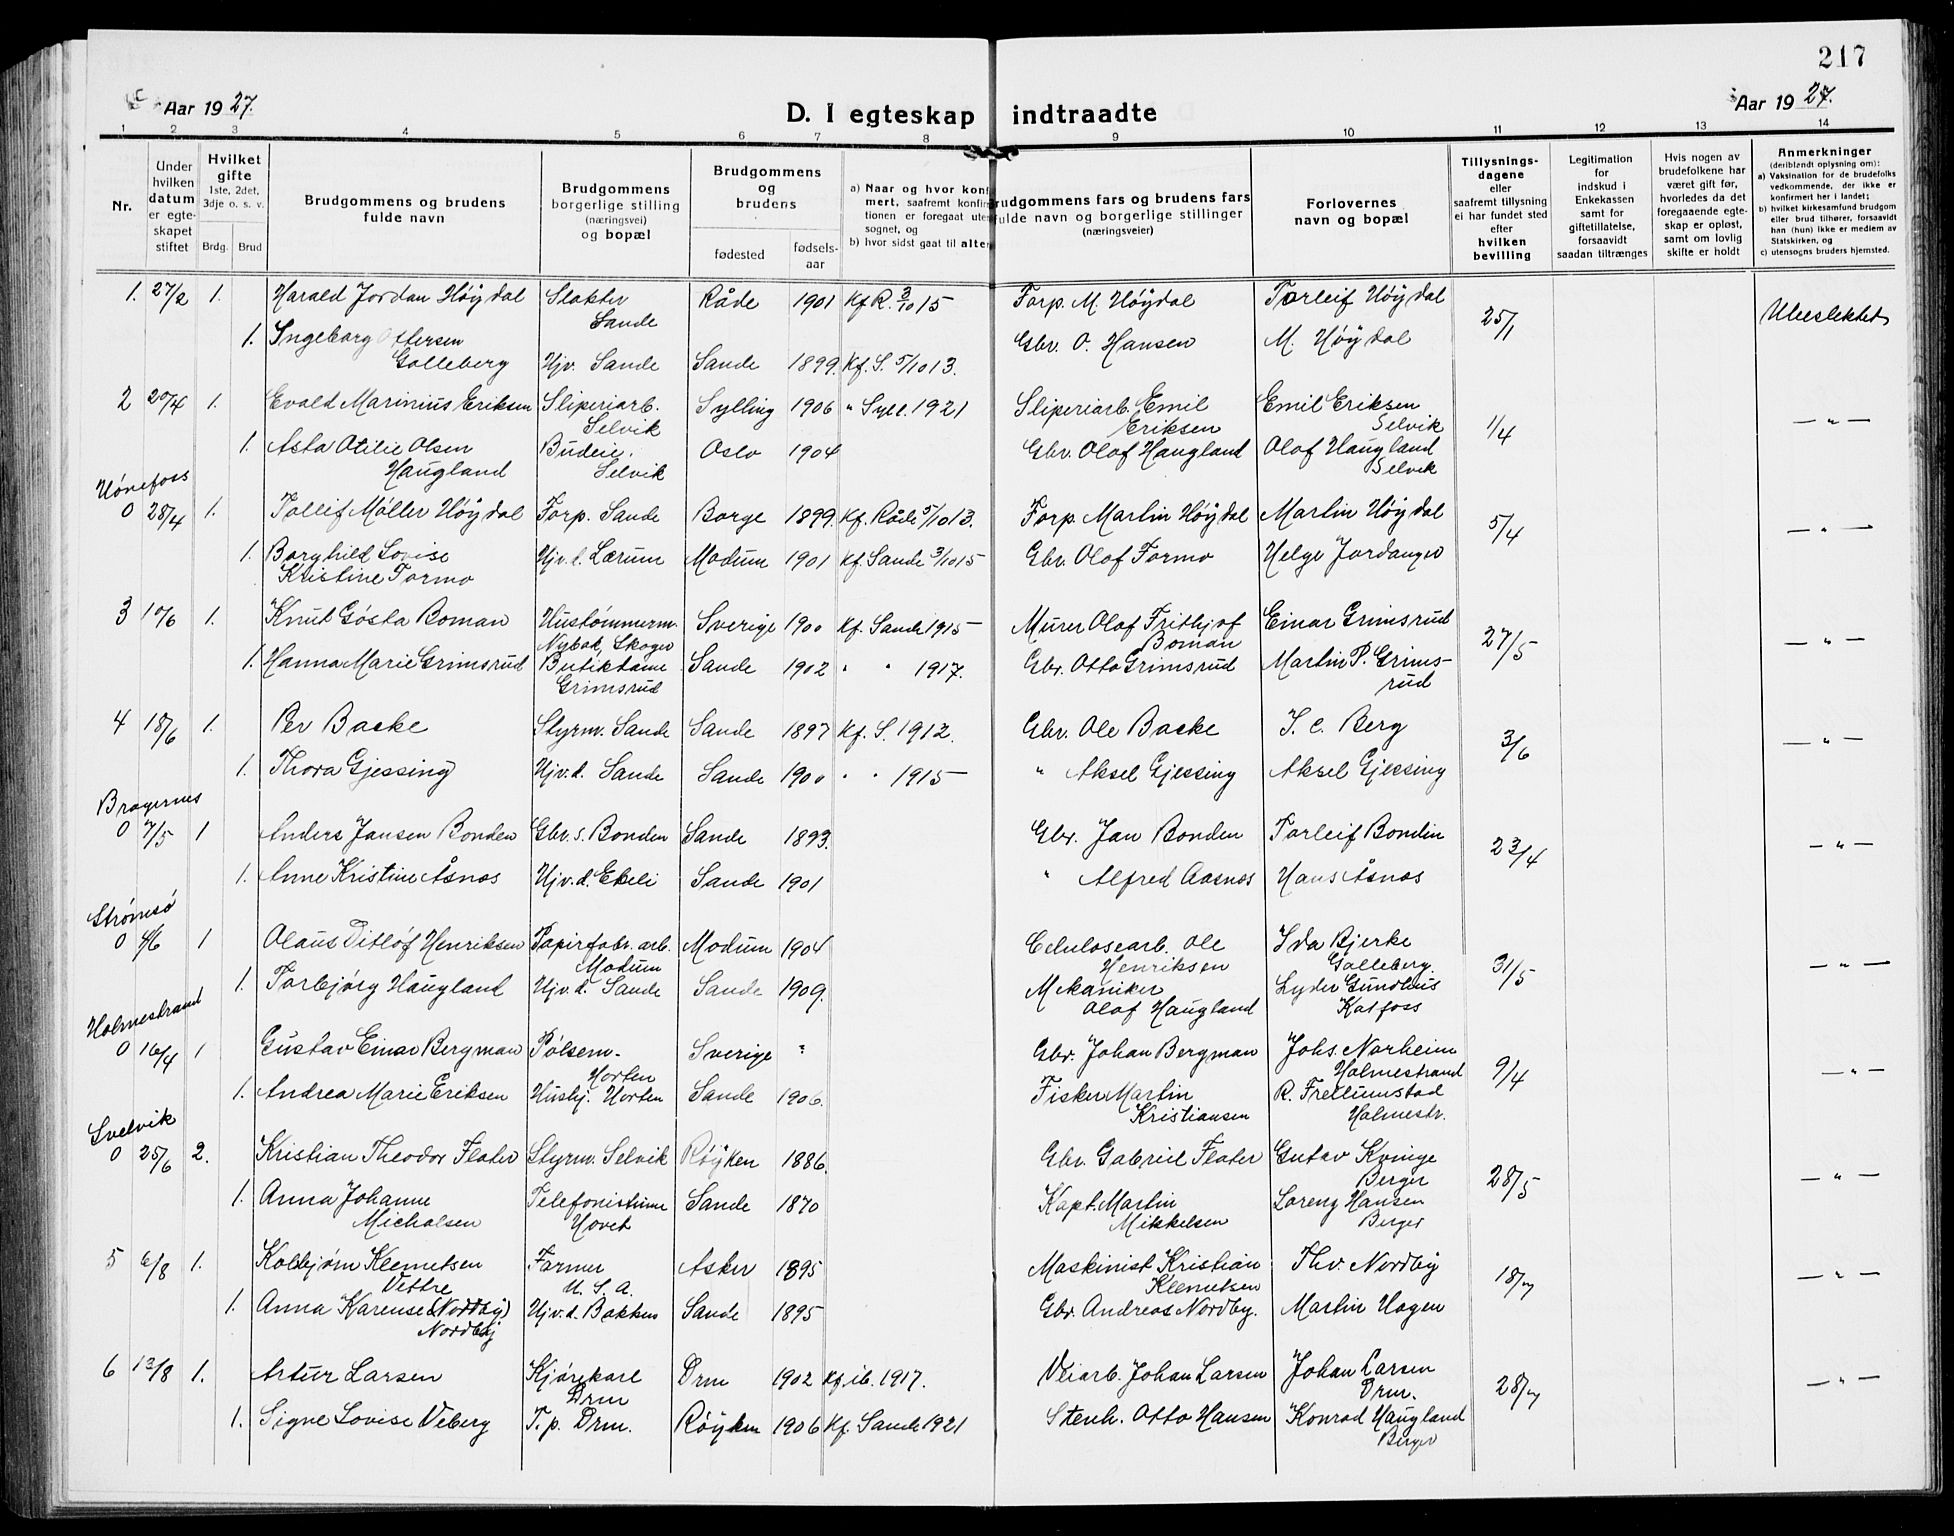 217
Aar 1927.
D. I egteskap indtraadte
Aar 1927.
1 2 3 4 5 6 7 8 9 10 11 12 13 14
Nr.
Under hvilken datum er egteskapet stiftet
Hvilket gifte 1ste, 2det, 3dje o. s. v.
Brdg. Brud
Brudgommens og brudens fulde navn
Brudgommens borgerlige stilling (næringsvei) og bopæl
Brudgommens og brudens
fødested
fødsels-aar
a) Naar og hvor konf
mert, saafremt konfir
tionen er foregaat uten
sognet, og
b) hvor sidst gaat til alter
rudgommens fars og brudens fars
fulde navn og borgerlige stillinger
(næringsveier)
Forlovernes navn og bopæl
Tillysnings-dagene eller saafremt tillysning ei har fundet sted efter hvilken bevilling
Legitimation for indskud i Enkekassen samt for giftetillatelse, forsaavidt saadan tiltrænges
Hvis nogen av brudefolkene har været gift før, hvorledes da det foregaaende egteskap er opløst, samt om lovlig skifte er holdt
Anmerkninger
(deriblandt oplysning om):
a) Vaksination for de brudefolks vedkommende, der ikke er konfirmert her i landet;
b) hvilket kirkesamfund brudgom eller brud tilhører, forsaavidt han (hun) ikke er medlem av Statskirken, og
c) utensogns bruders hjemsted.
1. 27/2 1. Harald Jordan Høydal Slakter Sande Råde 1901 Kf R. 3/10 15 Forp. M. Høydal Torleif Høydal 25/1 Ubeslektet
1. Ingeborg Ottersen Golleberg Hjv. Sande Sande 1899. Kf. S. 5/10 13. Gbr. O. Hansen M. Høydal
2 20/4 1. Evald Marinius Eriksen Sliperiarb. Selvik Sylling 1906 " Syll. 1921 Sliperiarb. Emil Eriksen Emil Eriksen Selvik 1/4 — " —
1. Asta Otilie Olsen Haugland Budeie. Selvik Oslo 1904 Gbr. Olaf Haugland Olaf Haugland Selvik
Hønefoss
0 28/4 1. Tollif Møller Høydal Forp. Sande Borge 1899. Kf. Råde 5/10 13. Forp. Martin Høydal Martin Høydal 5/4 — " —
1. Borghild Lovise Kristine Formo Hjv. l. Lærum Modum 1901 Kf. Sande 3/10 15 Gbr. Olaf Formo Helge Jordanger
3 10/6 1. Knut Gösta Boman Hustømmerm. Nybøk, Skoger Sverige 1900 Kf. Sande 1915 Murer Olof Frithjof Boman Einar Grimsrud 27/5 — " —
1. Hanna Marie Grimsrud Butikdame Grimsrud Sande 1902 " " 1917. Gbr. Otto Grimsrud Martin P. Grimsrud
4 18/6 1. Per Backe Styrm. Sande Sande 1897 Kf. S. 1912. Gbr. Ole Backe I. C. Berg 3/6 — " —
1. Thora Gjessing Hjv. d. Sande Sande 1900 " " 1915 " Aksel Gjessing Aksel Gjessing
Bragernes
0 7/5 1 Anders Jansen Bonden Gbr. s. Bonden Sande 1893. Gbr. Jan Bonden Torleif Bonden 23/4 — " —
1. Anne Kristine Åsnøs Hjv. d. Ekeli Sande 1901 " Alfred Aasnøs Hans Åsnøs
Strømsø
0 4/6 1 Olaus Ditløf Henriksen Papirfabr. arb. Modum Modum 1904 Celulosearb. Ole Henriksen Ida Bjerke Golleberg. 31/5 — " —
1. Torbjørg Haugland Hjv. d. Sande Sande 1909. Mekaniker Olaf Haugland Lyder Gundhus Katfoss
Holmestrand
0 16/4 1 Gustav Einar Bergman Pølsem. Horten Sverige " Gbr. Johan Bergman Johs. Norheim Holmestrand 9/4 — " —
1. Andrea Marie Eriksen Hushj. Horten Sande 1906. Fisker Martin Kristiansen R. Frellumstad Holmestr.
Svelvik
0 25/6 2. Kristian Theodor Flater Styrm. Selvik Røyken 1886. Gbr. Gabriel Flater Gustav Kvinge Berger 28/5 — " —
1. Anna Johanne Micholsen Telefonistinne Hovet Sande 1870 Kapt. Martin Mikkelsen Lorenz Hansen Berger
5 6/8 1. Kolbjørn Klemetsen Vettre Farmer U. S. A. Asker 1895 Maskinist Kristian Klemetsen Thv. Nordby 18/7 — " —
1. Anna Karense (Nordby) Nordby Hjv. d. Bakken Sande 1895 Gbr. Andreas Nordby. Martin Hagen
6 13/8 1. Artur Larsen Kjørekarl Drm Drm 1902 Kf. ib. 1917. Veiarb. Johan Larsen Johan Larsen Drm. 28/7 — " —
1. Signe Lovise Veberg T. p. Drm. Røyken 1906 Kf. Sande 1921 Stenh. Otto Hansen Konrad Haugland Berger